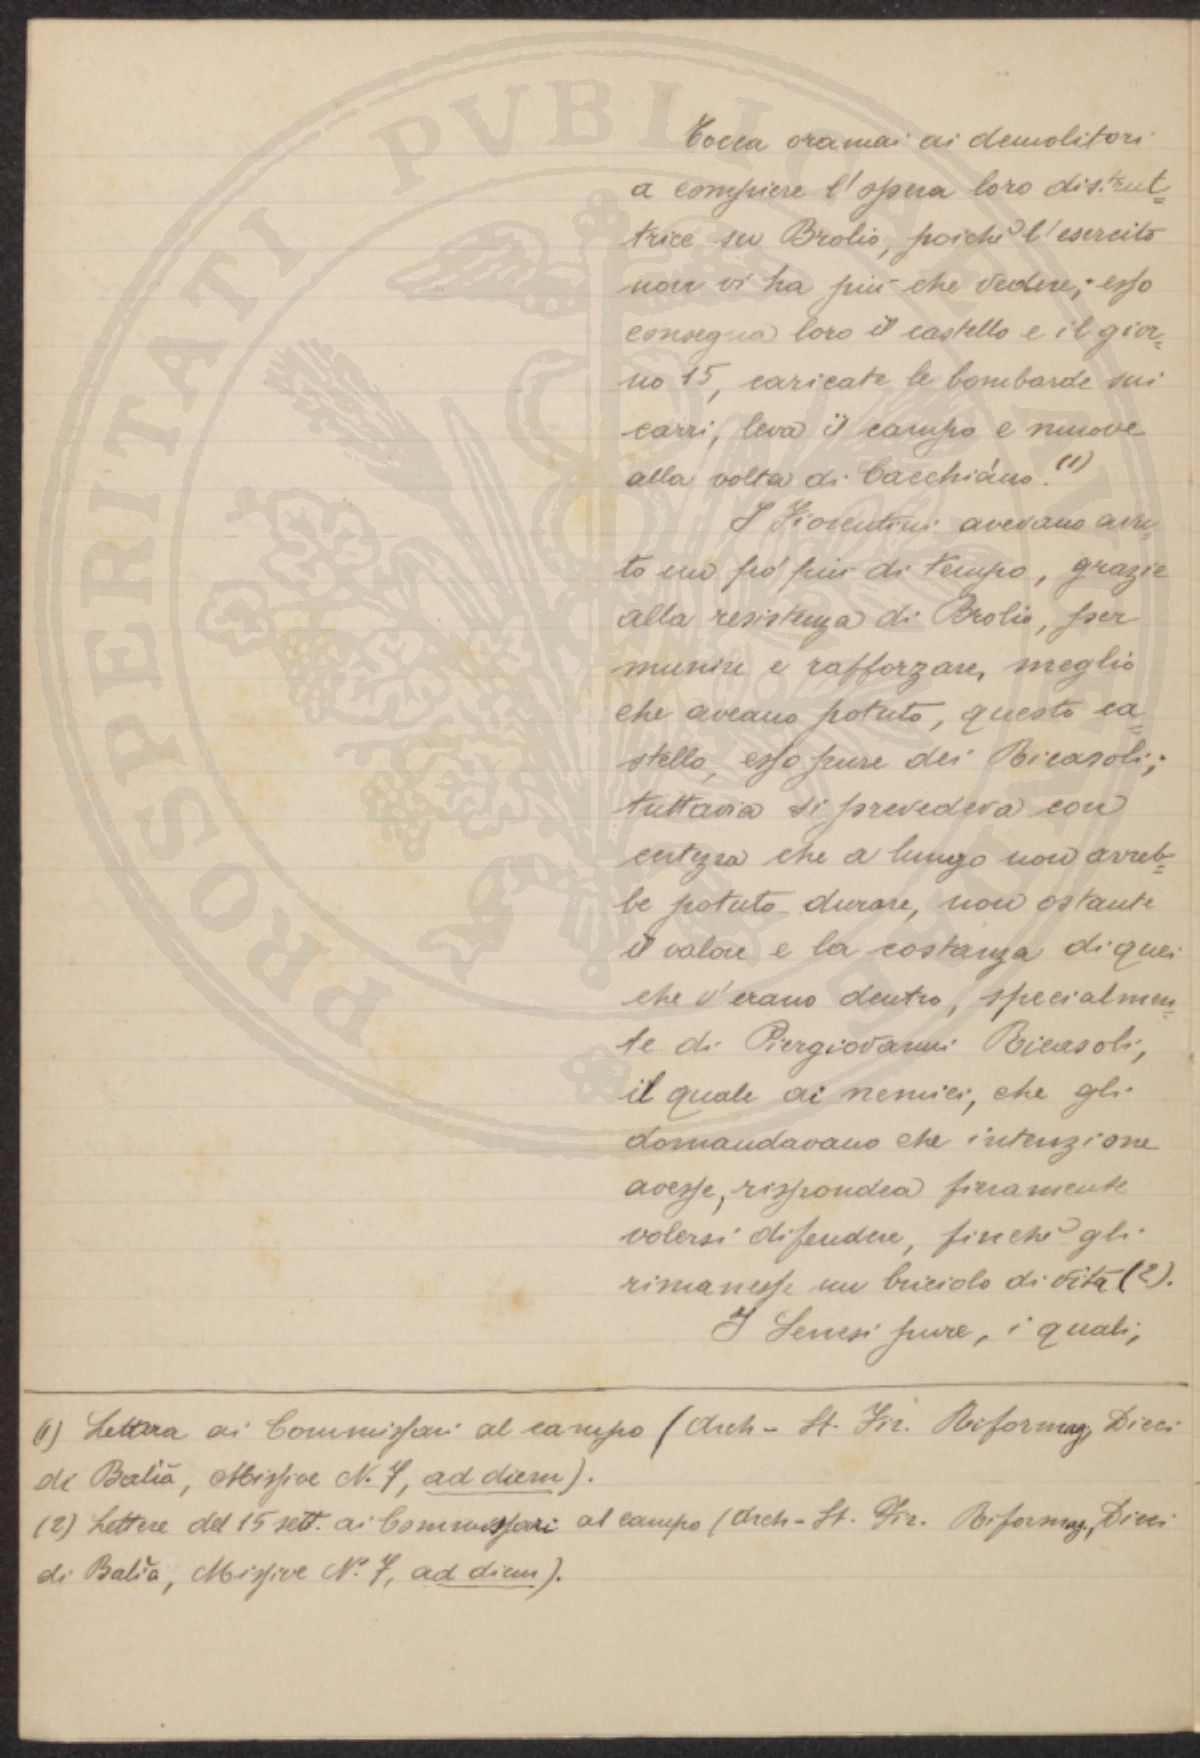 Tocca oramai ai demolitori
a compiere l'opera loro distrut=
trice su Brolio, poichè l'esercito
non vi ha più che vedere; esso
consegna loro il castello e il gior=
no 15, caricate le bombarde sui
carri, leva il campo e muove
alla volta di Cacchiano. (1)
I Fiorentini avevano avu=
to un pò più di tempo, grazie
alla resistenza di Brolio, per
munire e rafforzare, meglio
che aveano potuto, questo ca=
stello, esso pure dei Ricasoli;
tuttavia si prevedeva con
certezza che a lungo non avreb=
be potuto durare, non ostante
il valore e la costanza di quei
che v'erano dentro, specialmen=
te di Piergiovanni Ricasoli,
il quale ai nemici, che gli
domandavano che intenzione
avesse, rispondea fieramente
volersi difendere, finchè gli
rimanesse un briciolo di vita (2).
I Senesi pure, i quali,
(1) Lettera ai Commissari al campo (Arch- St. Fir. Riformag, Dieci
di Balìa, Missive N. 7, ad diem).
(2) Lettere del 15 sett. ai Commissari al campo (Arch- St. Fir. Riformag., Dieci
di Balìa, Missive N.° 7, ad diem).
PROSPERITATI PVBLICAE